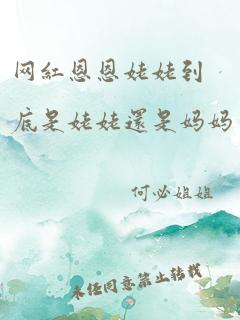 网红恩恩娃娃到
底是娃娃還是妈妈
何必姐姐
未经同意禁止转载